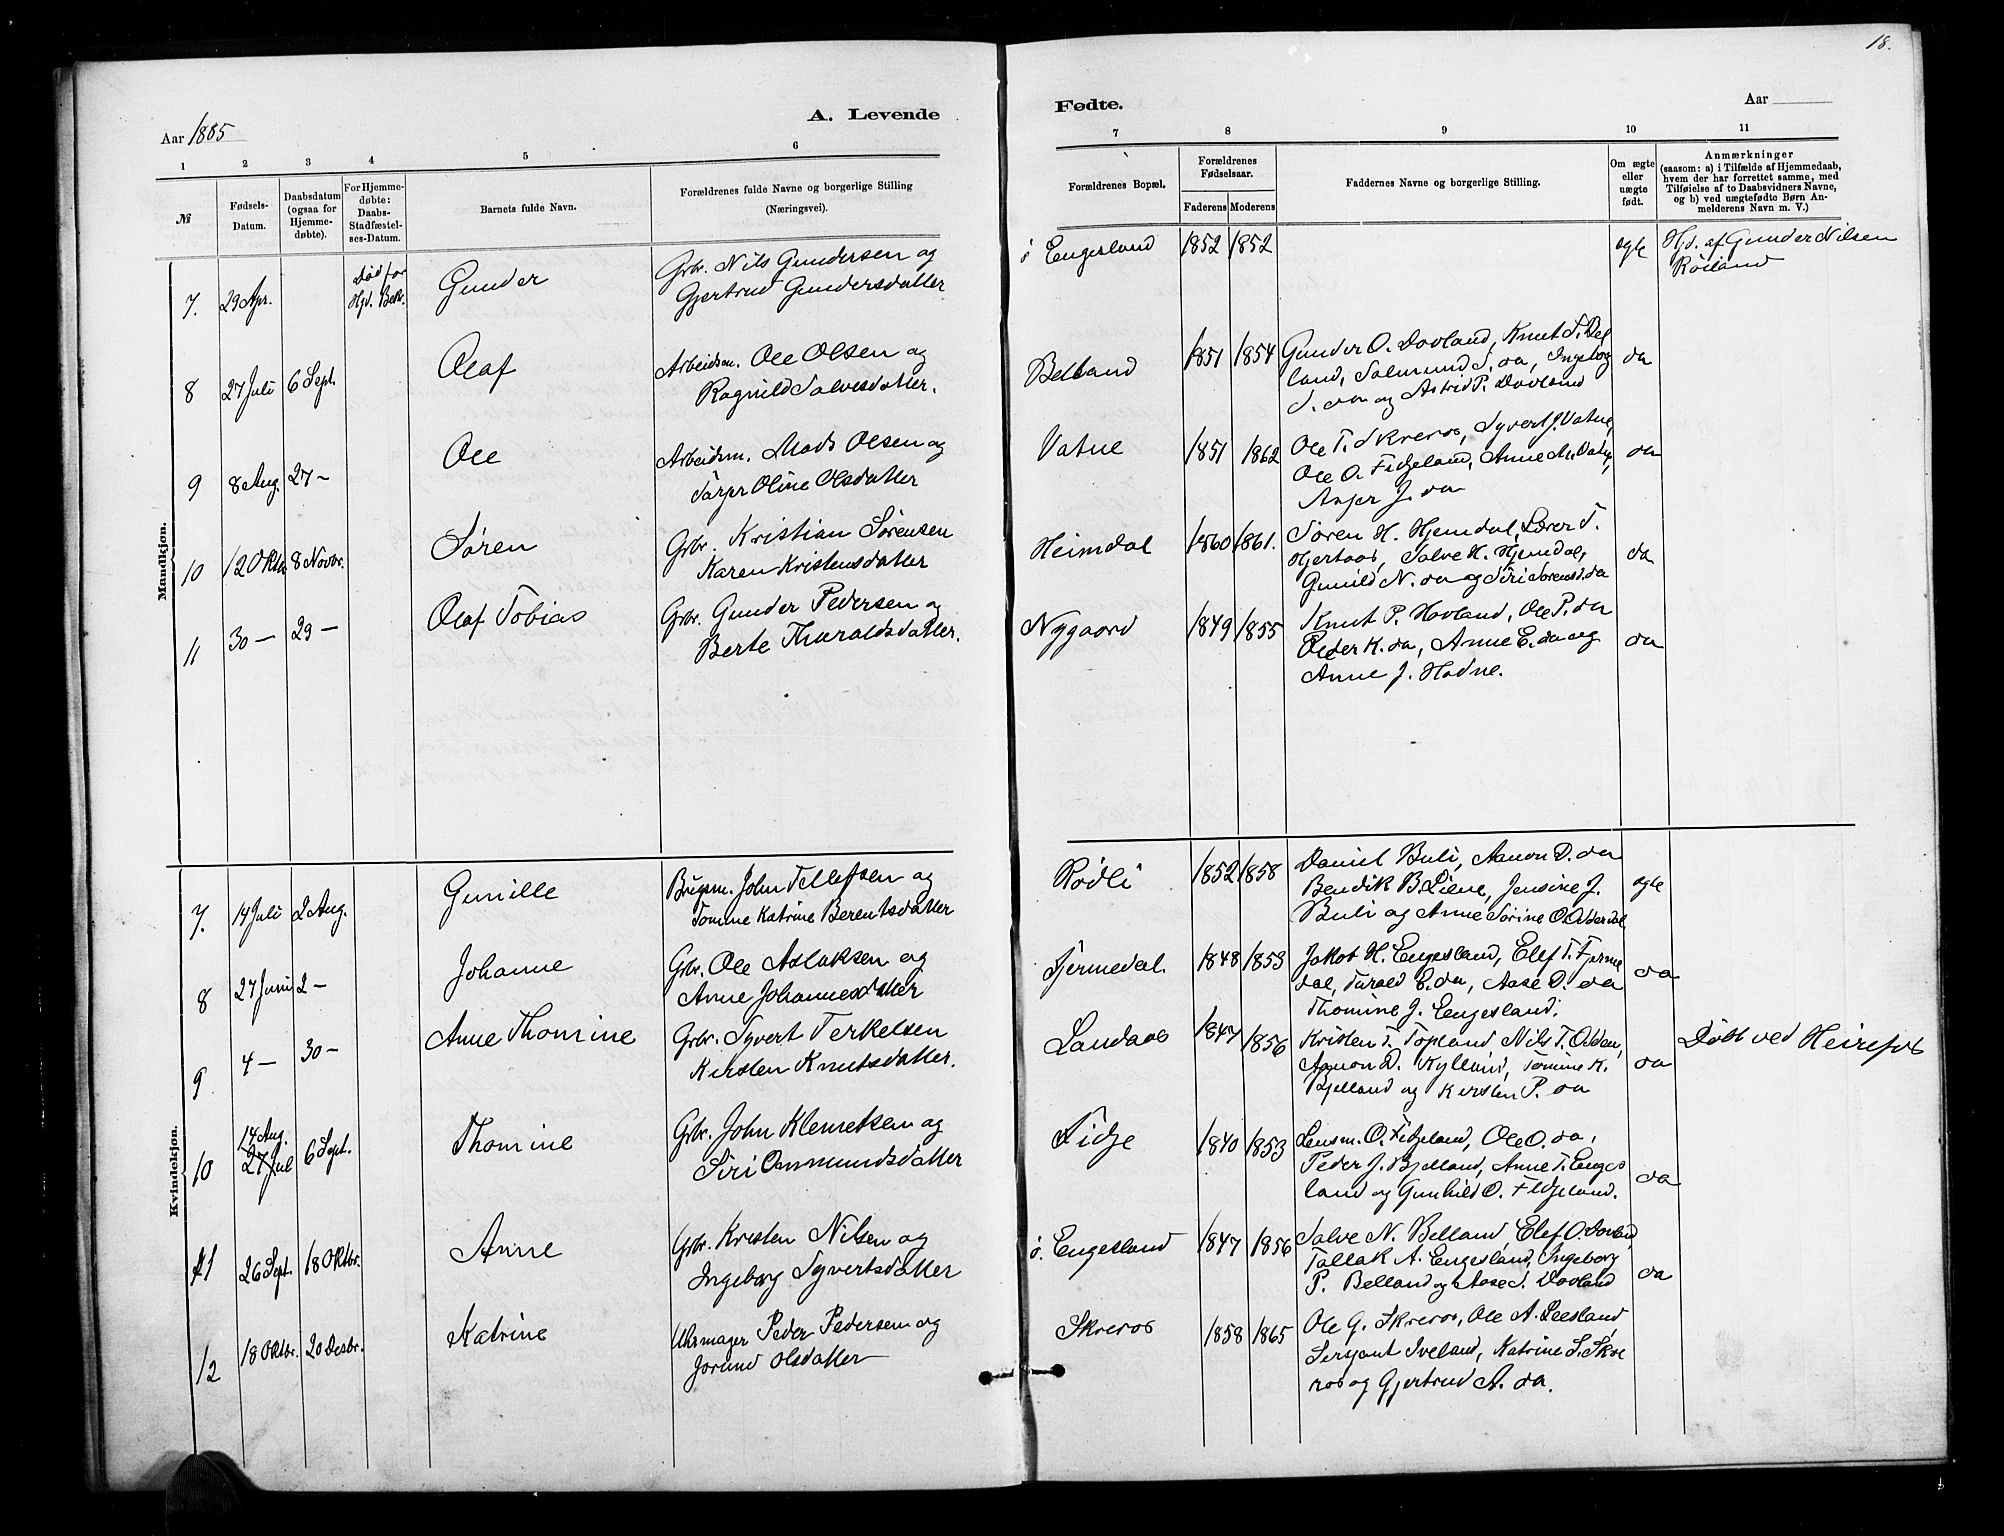 18.
Aar 1885
A. Levende
Fødte.
Aar
1 2 3 4 5 6 7 8 9 10 11
№
Fødsels-
Datum.
Daabsdatum
(ogsaa for
Hjemme-
døbte).
For Hjemme-
døbte:
Daabs-
Stadfæstel-
ses-Datum.
Barnets fulde Navn.
Forældrenes fulde Navne og borgerlige Stilling
(Næringsvei).
Forældrenes Bopæl.
Forældrenes
Fødselsaar.
Faderens Moderens
Faddernes Navne og borgerlige Stilling.
Om ægte
eller
uægte
født.
Anmærkninger
(saasom: a) i Tilfælde af Hjemmedaab,
hvem der har forrettet samme, med
Tilføielse af to Daabsvidners Navne,
og b) ved uægtefødte Børn An-
melderens Navn m. V.)
Mandkjøn.
7. 29 Apr. Død før
Hjd. Bekr.
Gunder
Grbr. Nils Gundersen og
Gjertrud Gundersdatter
ø Engesland 1852 1852
ægte
Hjd. af Gunder Nilsen
Røiland
8 27 Juli 6 Sept.
Olaf
Arbeidsm. Ole Olsen og
Ragnild Salvesdatter.
Belland 1851 1854
Gunder O. Dovland, Knut S. Bel
land, Salmund S. da, Ingeborg
S. da og Astrid P. Dovland
da
9 8 Aug. 27 –
Ole
Arbeidsm. Mads Olsen og
Oline Olsdatter
Vatne 1851 1862
Ole T. Skreros, Syvert J. Vatne,
Ole O. Fidjeland, Anne M. Vatn,
J. da
da
10 12 Oktbr 8 Novbr.
Søren
Grbr. Kristian Sørensen
Karen Kristensdatter
Heimdal 1860 1861.
Søren H. Hjemdal, Lærer T.
Hjertaas, Salve H. Hjemdal,
Gunild N. da og Siri Sørensd. da
da
11 30 – 29 –
Olaf Tobias
Grbr. Gunder Pedersen og
Berte Tharaldsdatter.
Nygaard 1849 1855
Knut P. Hovland, Ole P. da
Peder K. da, Anne E. da og
Anne J. Hodne.
da
Kvindekjøn.
7. 14 Juli 2 Aug.
Gunille
Brugsm. John Tellefsen og
Tomine Katrine Berentsdatter
Rødli 1852 1858
Daniel Buli, Aanon D. da
Bendik B. Liene, Jensine J.
Buli og Anne Sørine O. Odderdal
ægte
8 27 Juni 2 –
Johanne
Grbr. Ole Aslaksen og
Anne Johannesdatter
Fjermedal. 1848 1853
Jakob H. Engesland, Elef T. Fjerme
dal, Tarald E. da, Aase D. da
Thomine J. Engesland.
da
9 4 – 30 –
Anne Thomine
Grbr. Syvert Terkelsen
Kirsten Knutsdatter.
Landaas 1847 1856
Kristen T. Topland Nils T. Odden,
Aanon D. Kylland, Tomine K.
Bjelland og Kirsten P. da
da
Døbt ved Heirefos
10 14 Aug.
27 Jul
6 Sept.
Thomine
Grbr. John Klemetsen og
Siri Ommundsdatter
Fidje 1840 1853
Lensm. O. Fidjeland, Ole O. da,
Peder J. Bjelland, Anne T. Enges
land og Gunhild O. Fidjeland.
da
11 26 Sept. 18 Oktbr.
Anne
Grbr. Kristen Nilsen og
Ingeborg Syvertsdatter
ø. Engesland 1847 1856
Salve N. Belland, Elef O. Dovland,
Tallak A. Engesland, Ingeborg
P. Belland og Aase S. Dovland
da
12 18 Oktbr. 20 Desbr.
Katrine
Uhrmager Peder Pedersen og
Jorund Olsdatter
Skreros 1858 1865
Ole G. Skreros, Ole A. Leesland
Sersjant Iveland, Katrine S. Skre
ros og Gjertrud A. da.